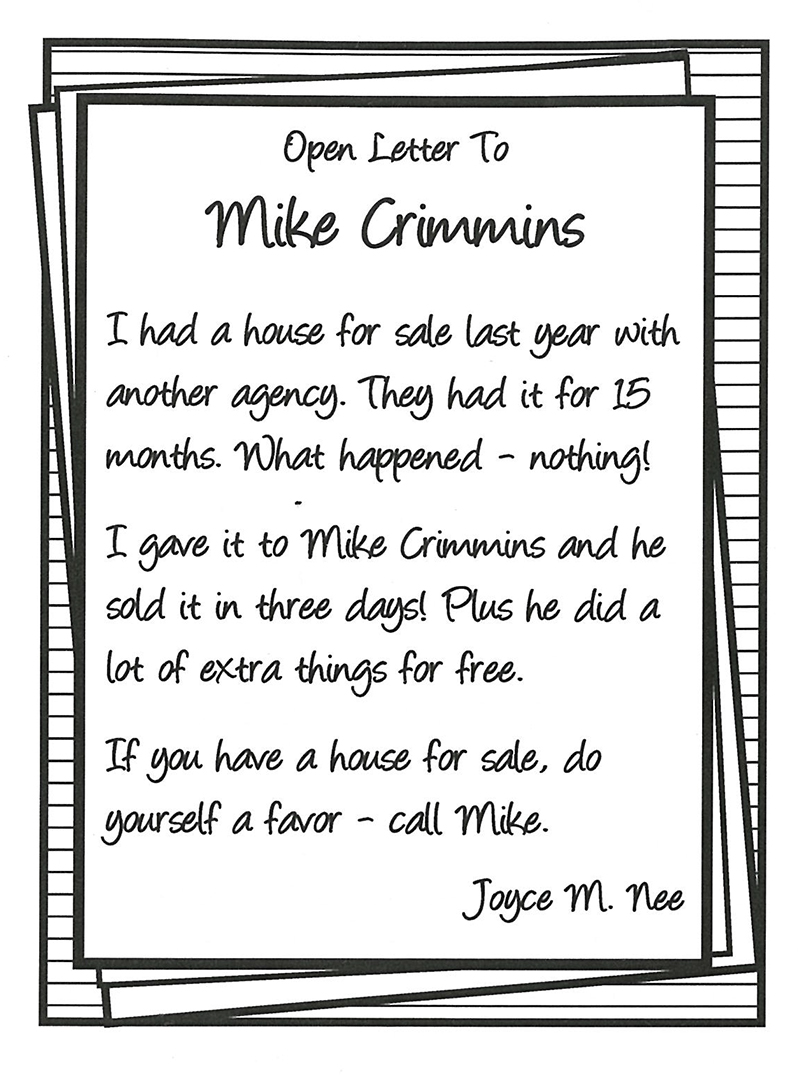 Open Letter To
Mike Crimmins
I had a house for sale last year with
another agency. They had it for 15
months. What happened - nothing!
I gave it to Mike Crimmins and he
sold it in three days! Plus he did a
lot of extra things for free.
If you have a house for sale, do
yourself a favor - call Mike.
Joyce M. Nee